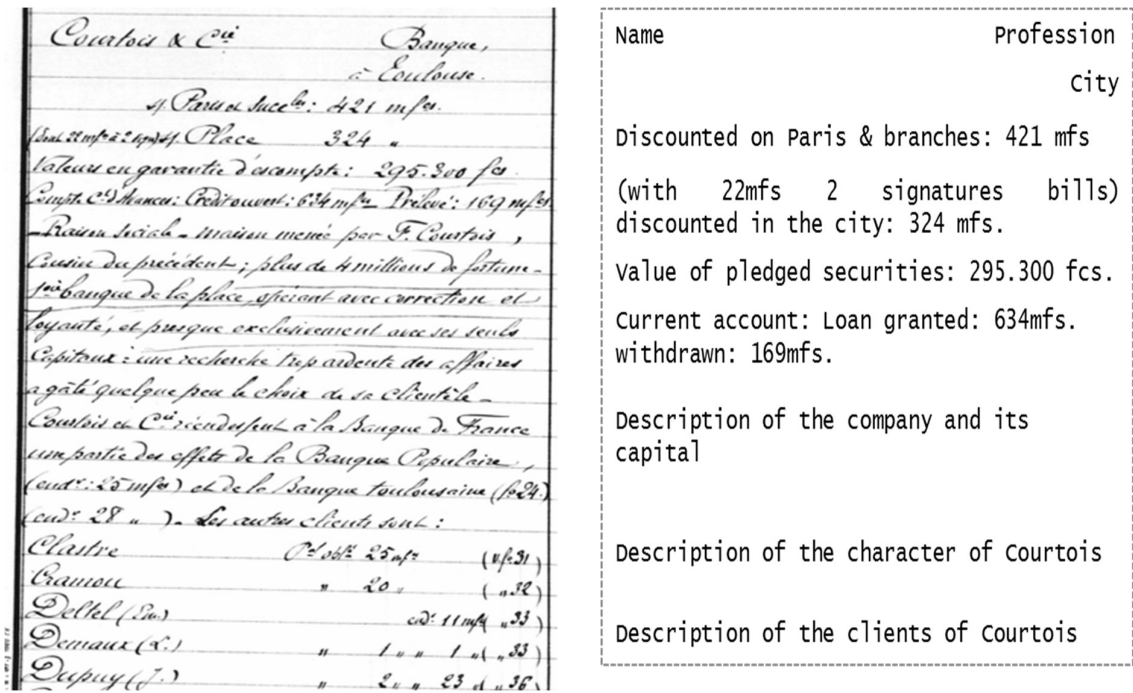 Courtois & Cie Banque,
à Toulouse.
s/. Paris et Succles: 421 mfcs.
(dont 22 mfs à 2 sign) s/. Place 324 "
Valeurs en garantie d'escompte: 295.300 fcs.
Compte Ct d'Avances: Crédit ouvert: 634 mfcs _ Prélevé: 169 mfcs.
_ Raison sociale _ maison menée par F. Courtois,
cousin du précédent; plus de 4 millions de fortune _
1ère banque de la place, opérant avec correction et
loyauté, et presque exclusivement avec ses seuls
capitaux: une recherche trop ardente des affaires
a gâté quelque peu le choix de sa clientèle _
Courtois et Cie réendossent à la Banque de France
une partie des effets de la Banque Populaire,
(endt: 25 mfcs) et de la Banque toulousaine (fo 24)
(endt 28 " ). Les autres clients sont:
Clastre 25 mfs (v. fo 31)
Cramou " 20 " ( " 32)
Deltel (Em) endt 11 mfs ( " 33)
Demaux (L.) " 1 " " 1 " ( " 33)
Dupuy (J.) " 2 " " 23 " ( " 36)
Name Profession
City
Discounted on Paris & branches: 421 mfs
(with 22mfs 2 signatures bills)
discounted in the city: 324 mfs.
Value of pledged securities: 295.300 fcs.
Current account: Loan granted: 634mfs.
withdrawn: 169mfs.
Description of the company and its
capital
Description of the character of Courtois
Description of the clients of Courtois